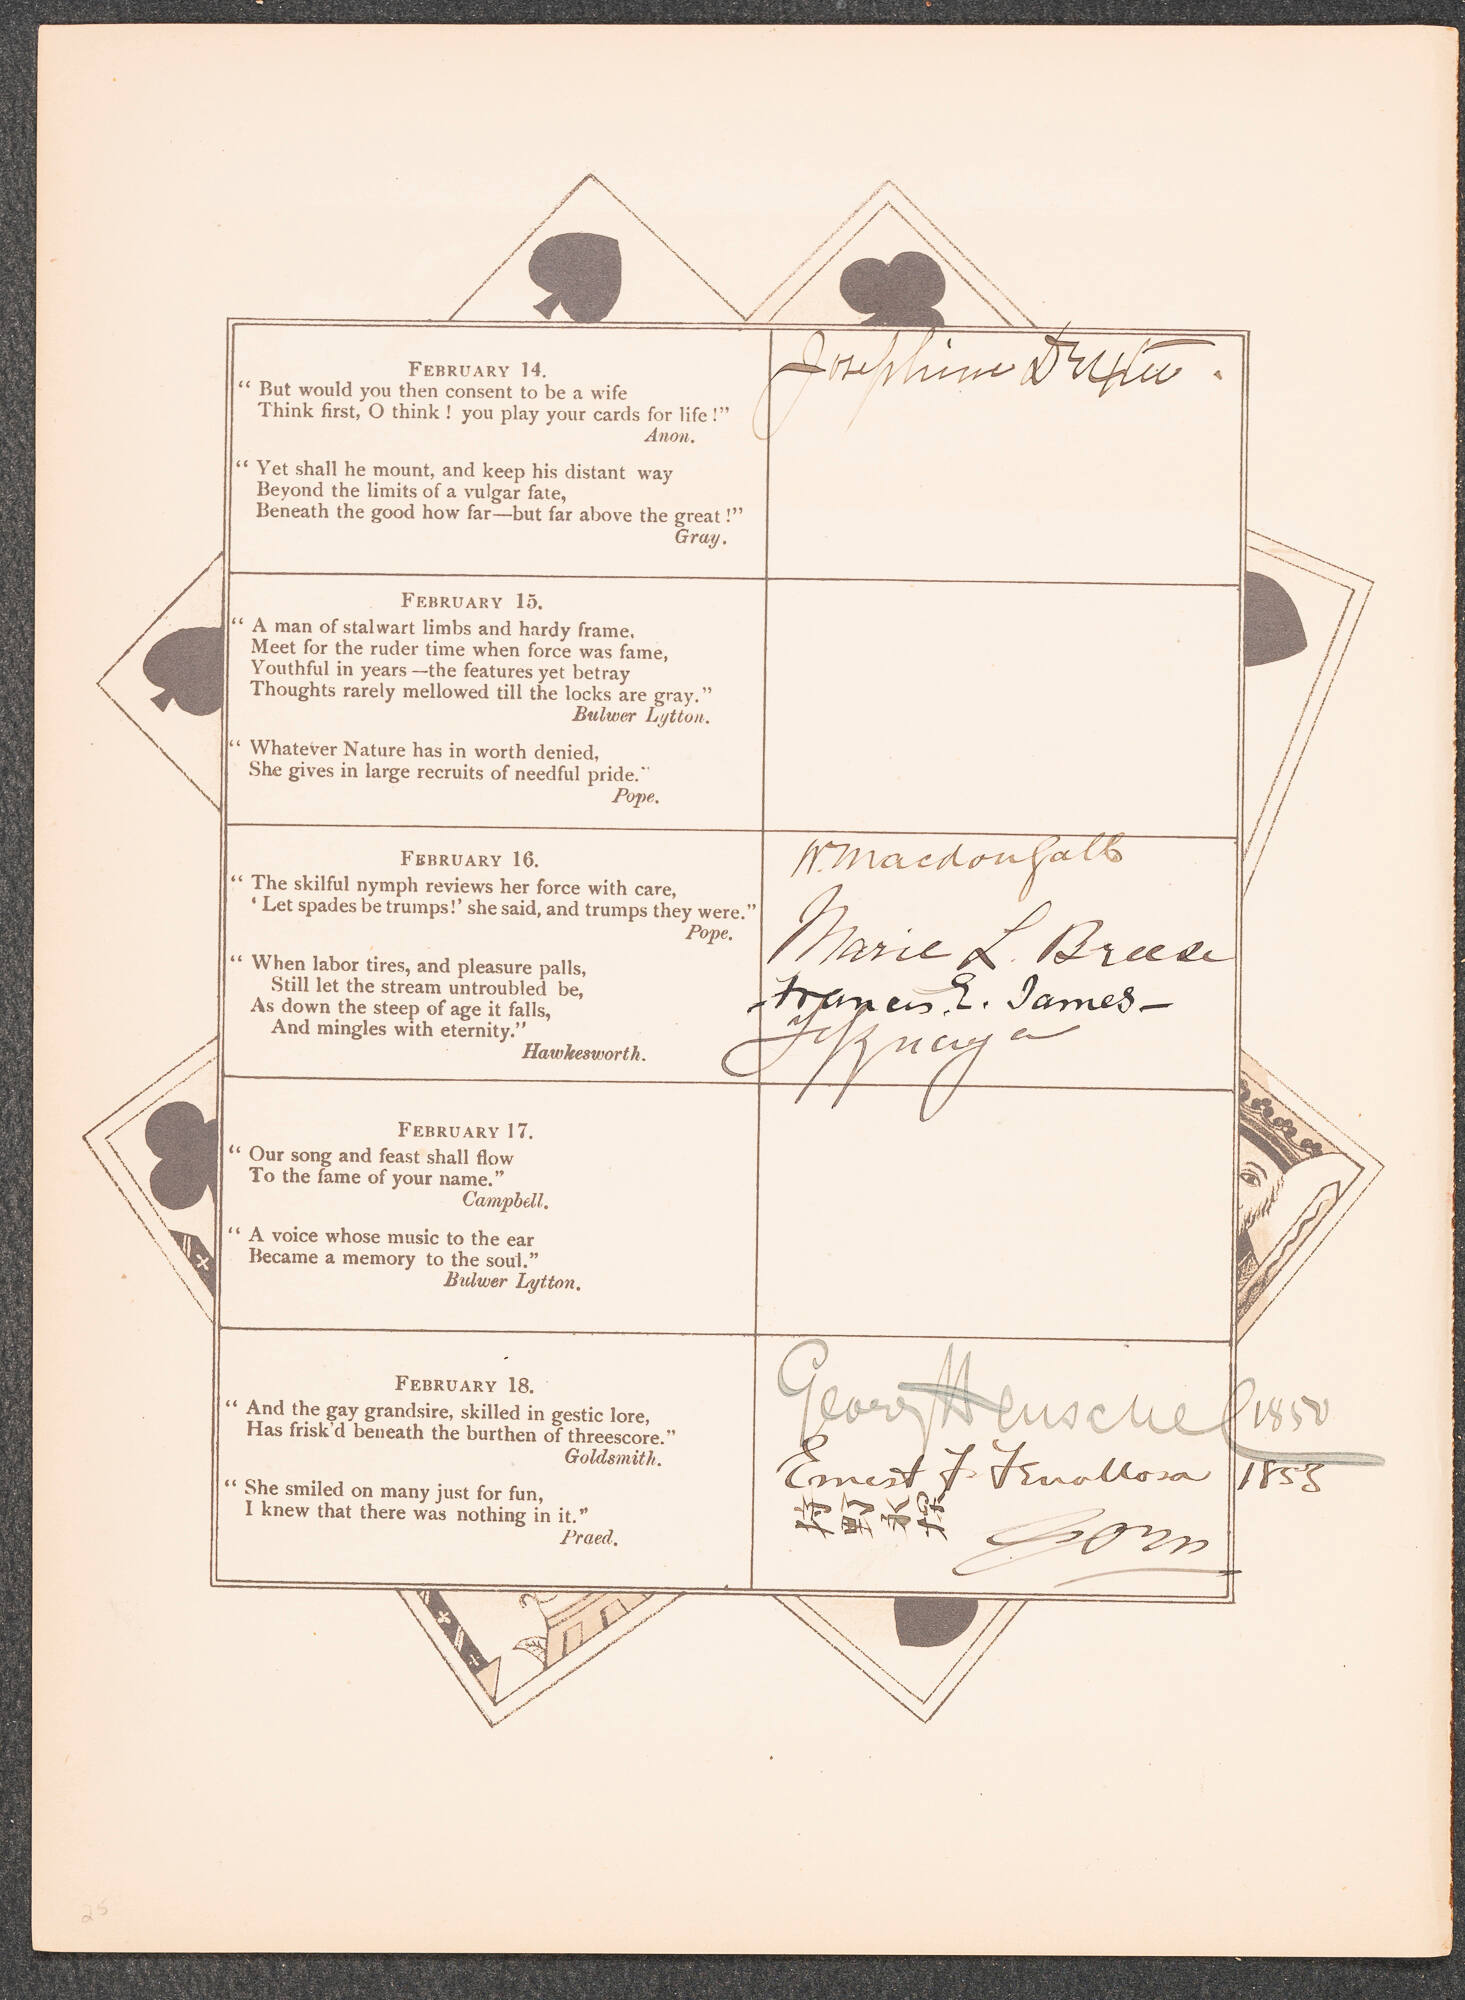 FEBRUARY 14.
“ But would you then consent to be a wife
Think first, O think ! you play your cards for life !”
Anon.
“ Yet shall he mount, and keep his distant way
Beyond the limits of a vulgar fate,
Beneath the good how far—but far above the great !”
Gray.
Josephine Dexter.
FEBRUARY 15.
“ A man of stalwart limbs and hardy frame,
Meet for the ruder time when force was fame,
Youthful in years—the features yet betray
Thoughts rarely mellowed till the locks are gray.”
Bulwer Lytton.
“ Whatever Nature has in worth denied,
She gives in large recruits of needful pride.”
Pope.
FEBRUARY 16.
“ The skilful nymph reviews her force with care,
‘ Let spades be trumps!’ she said, and trumps they were.”
Pope.
“ When labor tires, and pleasure palls,
Still let the stream untroubled be,
As down the steep of age it falls,
And mingles with eternity.”
Hawkesworth.
W. Macdougall
Marie L. Breese
Francis. E. James—
FEBRUARY 17.
“ Our song and feast shall flow
To the fame of your name.”
Campbell.
“ A voice whose music to the ear
Became a memory to the soul.”
Bulwer Lytton.
FEBRUARY 18.
“ And the gay grandsire, skilled in gestic lore,
Has frisk'd beneath the burthen of threescore.”
Goldsmith.
“ She smiled on many just for fun,
I knew that there was nothing in it.”
Praed.
Georg Henschel 1850
Ernest F. Fenollosa 1853
狩野永探
Zorn
25